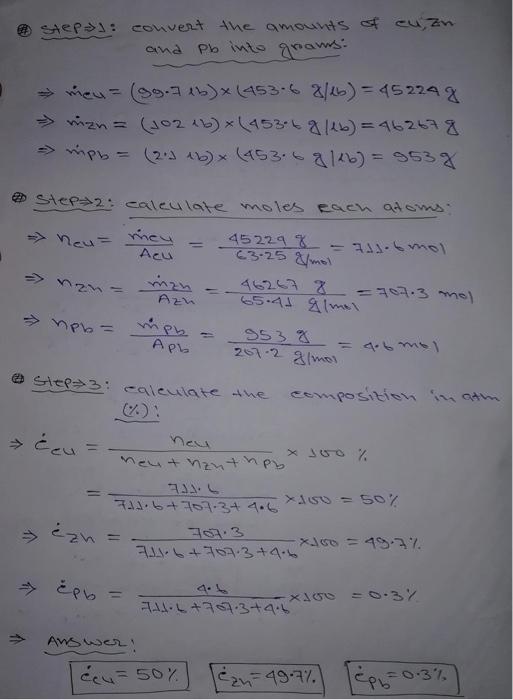 # Step⇒1: convert the amounts of cu, Zn
and Pb into grams:
⇒ ṁcu = (99.7 lb) × (453.6 g/lb) = 45224 g
⇒ ṁzn = (102 lb) × (453.6 g/lb) = 46267 g
⇒ ṁpb = (2.1 lb) × (453.6 g/lb) = 953 g
# Step⇒2: calculate moles each atoms:
⇒ ncu = ṁcu / Acu = 45229 g / 63.25 g/mol = 711.6 mol
⇒ nzn = ṁzn / Azn = 46267 g / 65.41 g/mol = 707.3 mol
⇒ npb = ṁpb / Apb = 953 g / 207.2 g/mol = 4.6 mol
# Step⇒3: calculate the composition in atm
(%):
⇒ ċcu = ncu / ncu + nzn + npb × 100 %
= 711.6 / 711.6 + 707.3 + 4.6 × 100 = 50%
⇒ ċzn = 707.3 / 711.6 + 707.3 + 4.6 × 100 = 49.7%
⇒ ċpb = 4.6 / 711.6 + 707.3 + 4.6 × 100 = 0.3%
⇒ Answer:
ċcu = 50% ċzn = 49.7% ċpb = 0.3%